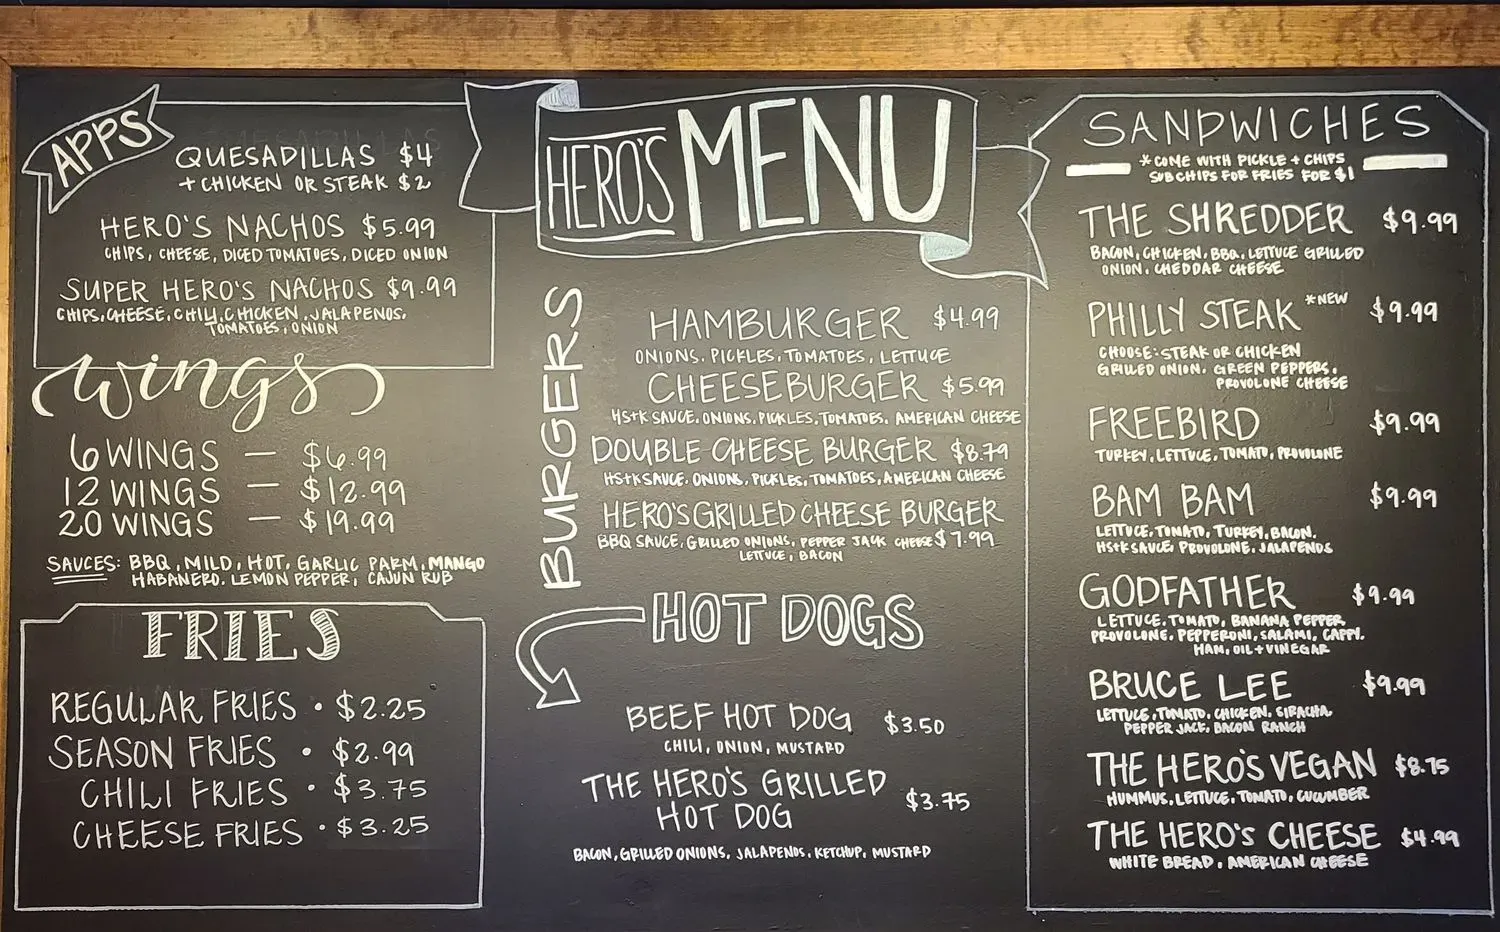 HERO'S MENU
APPS
QUESADILLAS $4
+ CHICKEN OR STEAK $2
HERO'S NACHOS $5.99
CHIPS, CHEESE, DICED TOMATOES, DICED ONION
SUPER HERO'S NACHOS $9.99
CHIPS, CHEESE, CHILI, CHICKEN, JALAPENOS,
TOMATOES, ONION
wings
6 WINGS — $6.99
12 WINGS — $12.99
20 WINGS — $19.99
SAUCES: BBQ, MILD, HOT, GARLIC PARM, MANGO
HABANERO, LEMON PEPPER, CAJUN RUB
FRIES
REGULAR FRIES • $2.25
SEASON FRIES • $2.99
CHILI FRIES • $3.75
CHEESE FRIES • $3.25
BURGERS
HAMBURGER $4.99
ONIONS, PICKLES, TOMATOES, LETTUCE
CHEESEBURGER $5.99
HS+K SAUCE, ONIONS, PICKLES, TOMATOES, AMERICAN CHEESE
DOUBLE CHEESE BURGER $8.79
HS+K SAUCE, ONIONS, PICKLES, TOMATOES, AMERICAN CHEESE
HERO'S GRILLED CHEESE BURGER
BBQ SAUCE, GRILLED ONIONS, PEPPER JACK CHEESE $7.99
LETTUCE, BACON
HOT DOGS
BEEF HOT DOG $3.50
CHILI, ONION, MUSTARD
THE HERO'S GRILLED
HOT DOG $3.75
BACON, GRILLED ONIONS, JALAPENOS, KETCHUP, MUSTARD
SANDWICHES
*COME WITH PICKLE + CHIPS
SUB CHIPS FOR FRIES FOR $1
THE SHREDDER $9.99
BACON, CHICKEN, BBQ, LETTUCE GRILLED
ONION, CHEDDAR CHEESE
PHILLY STEAK *NEW $9.99
CHOOSE: STEAK OR CHICKEN
GRILLED ONION, GREEN PEPPERS,
PROVOLONE CHEESE
FREEBIRD $9.99
TURKEY, LETTUCE, TOMATO, PROVOLONE
BAM BAM $9.99
LETTUCE, TOMATO, TURKEY, BACON,
HS+K SAUCE, PROVOLONE, JALAPENOS
GODFATHER $9.99
LETTUCE, TOMATO, BANANA PEPPER
PROVOLONE, PEPPERONI, SALAMI, CAPPY,
HAM, OIL + VINEGAR
BRUCE LEE $9.99
LETTUCE, TOMATO, CHICKEN, SIRACHA,
PEPPER JACK, BACON RANCH
THE HERO'S VEGAN $8.75
HUMMUS, LETTUCE, TOMATO, CUCUMBER
THE HERO'S CHEESE $4.99
WHITE BREAD, AMERICAN CHEESE